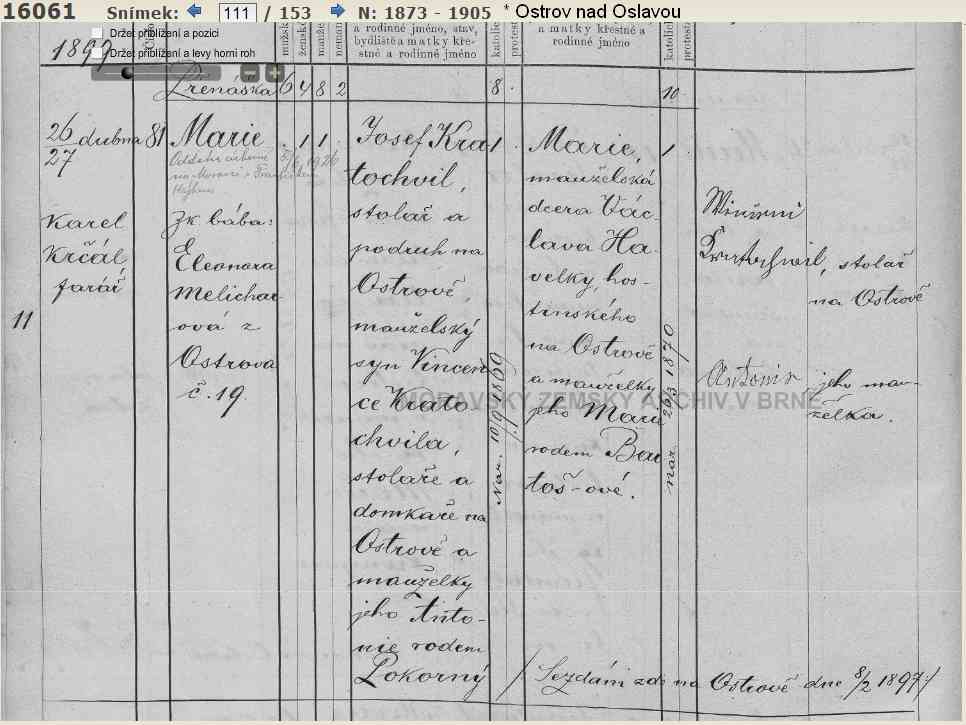 16061 Snímek: 111 / 153 N: 1873 - 1905 * Ostrov nad Oslavou
Držet přiblížení a pozici
Držet přiblížení a levy horni roh
1897
a rodinné jméno, stav,
bydliště a matky kře-
stné a rodinné jméno
a matky křestné i
rodinné jméno
Přenáška 6 4 8 2 8 . 10
26
27
dubna
Karel
Krčál
farář
11
81
Marie . 1 1 .
Zk. bába:
Eleonora
Melichar-
ová z
Ostrova
č. 19.
Josef Kra
tochvil,
stolař a
podruh na
Ostrově,
manželský
syn Vincen
ce Krato
chvila,
stolaře a
domkaře na
Ostrově a
manželky
jeho Anto-
nie rodem
Pokorný
1
Nar. 10/9 1869
Marie,
manželská
dcera Vác-
lava Ha-
velky, hos-
tinského
na Ostrově
a manželky
jeho Marie
rodem Bar
toš-ové.
1
nar. 26/3 1870
Kratochwil, stolař
na Ostrově
Antonie jeho man-
želka.
MORAVSKÝ ZEMSKÝ ARCHIV V BRNĚ
/ Sezdáni zde na Ostrově dne 8/2 1897 /